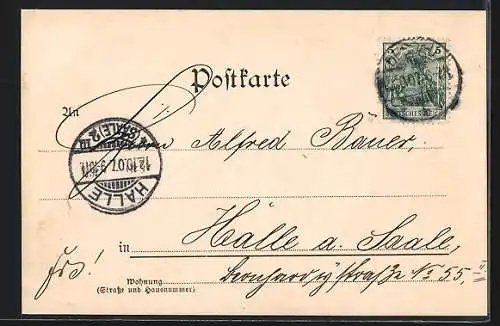 5
DEUTSCHES REICH
Postkarte
An
Herrn Alfred Bauer,
HALLE (SAALE) 2
12.10.07
Halle a. Saale,
in
frs!
Bernhardystraße No 55 II
Wohnung
(Straße und Hausnummer)